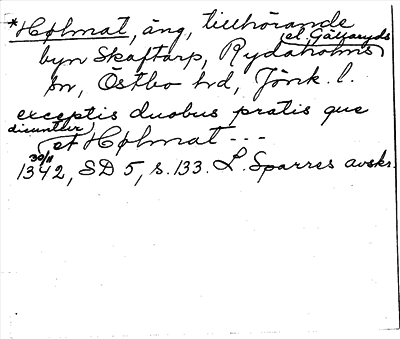 *Hølmat, äng, tillhörande
el. Gällaryds
byn Skaftarp, Rydaholms
sn, Östbo hd, Jönk. l.
exceptis duobus pratis que
dicuntur
et Hølmat ---
30/11
1342, SD 5, s. 133. L. Sparres avskr.